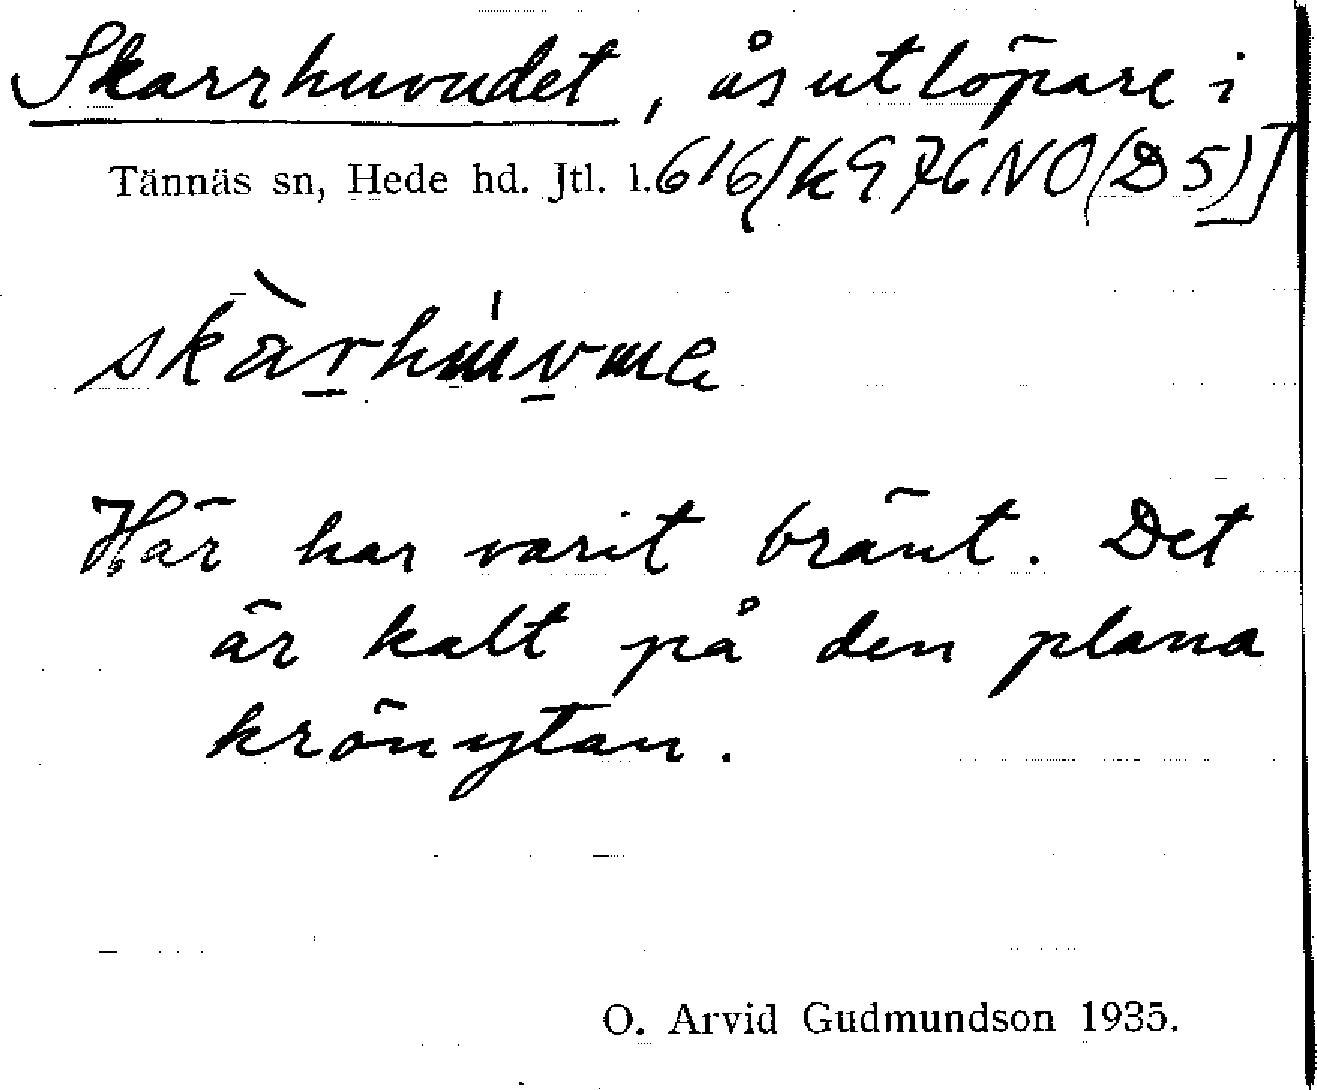 Skarrhuvudet, åsutlöpare i
Tännäs sn, Hede hd. Jtl. l. 616[k976NO(D5)]
Här har varit bränt. Det
är kalt på den plana
krönytan.
O. Arvid Gudmundson 1935.